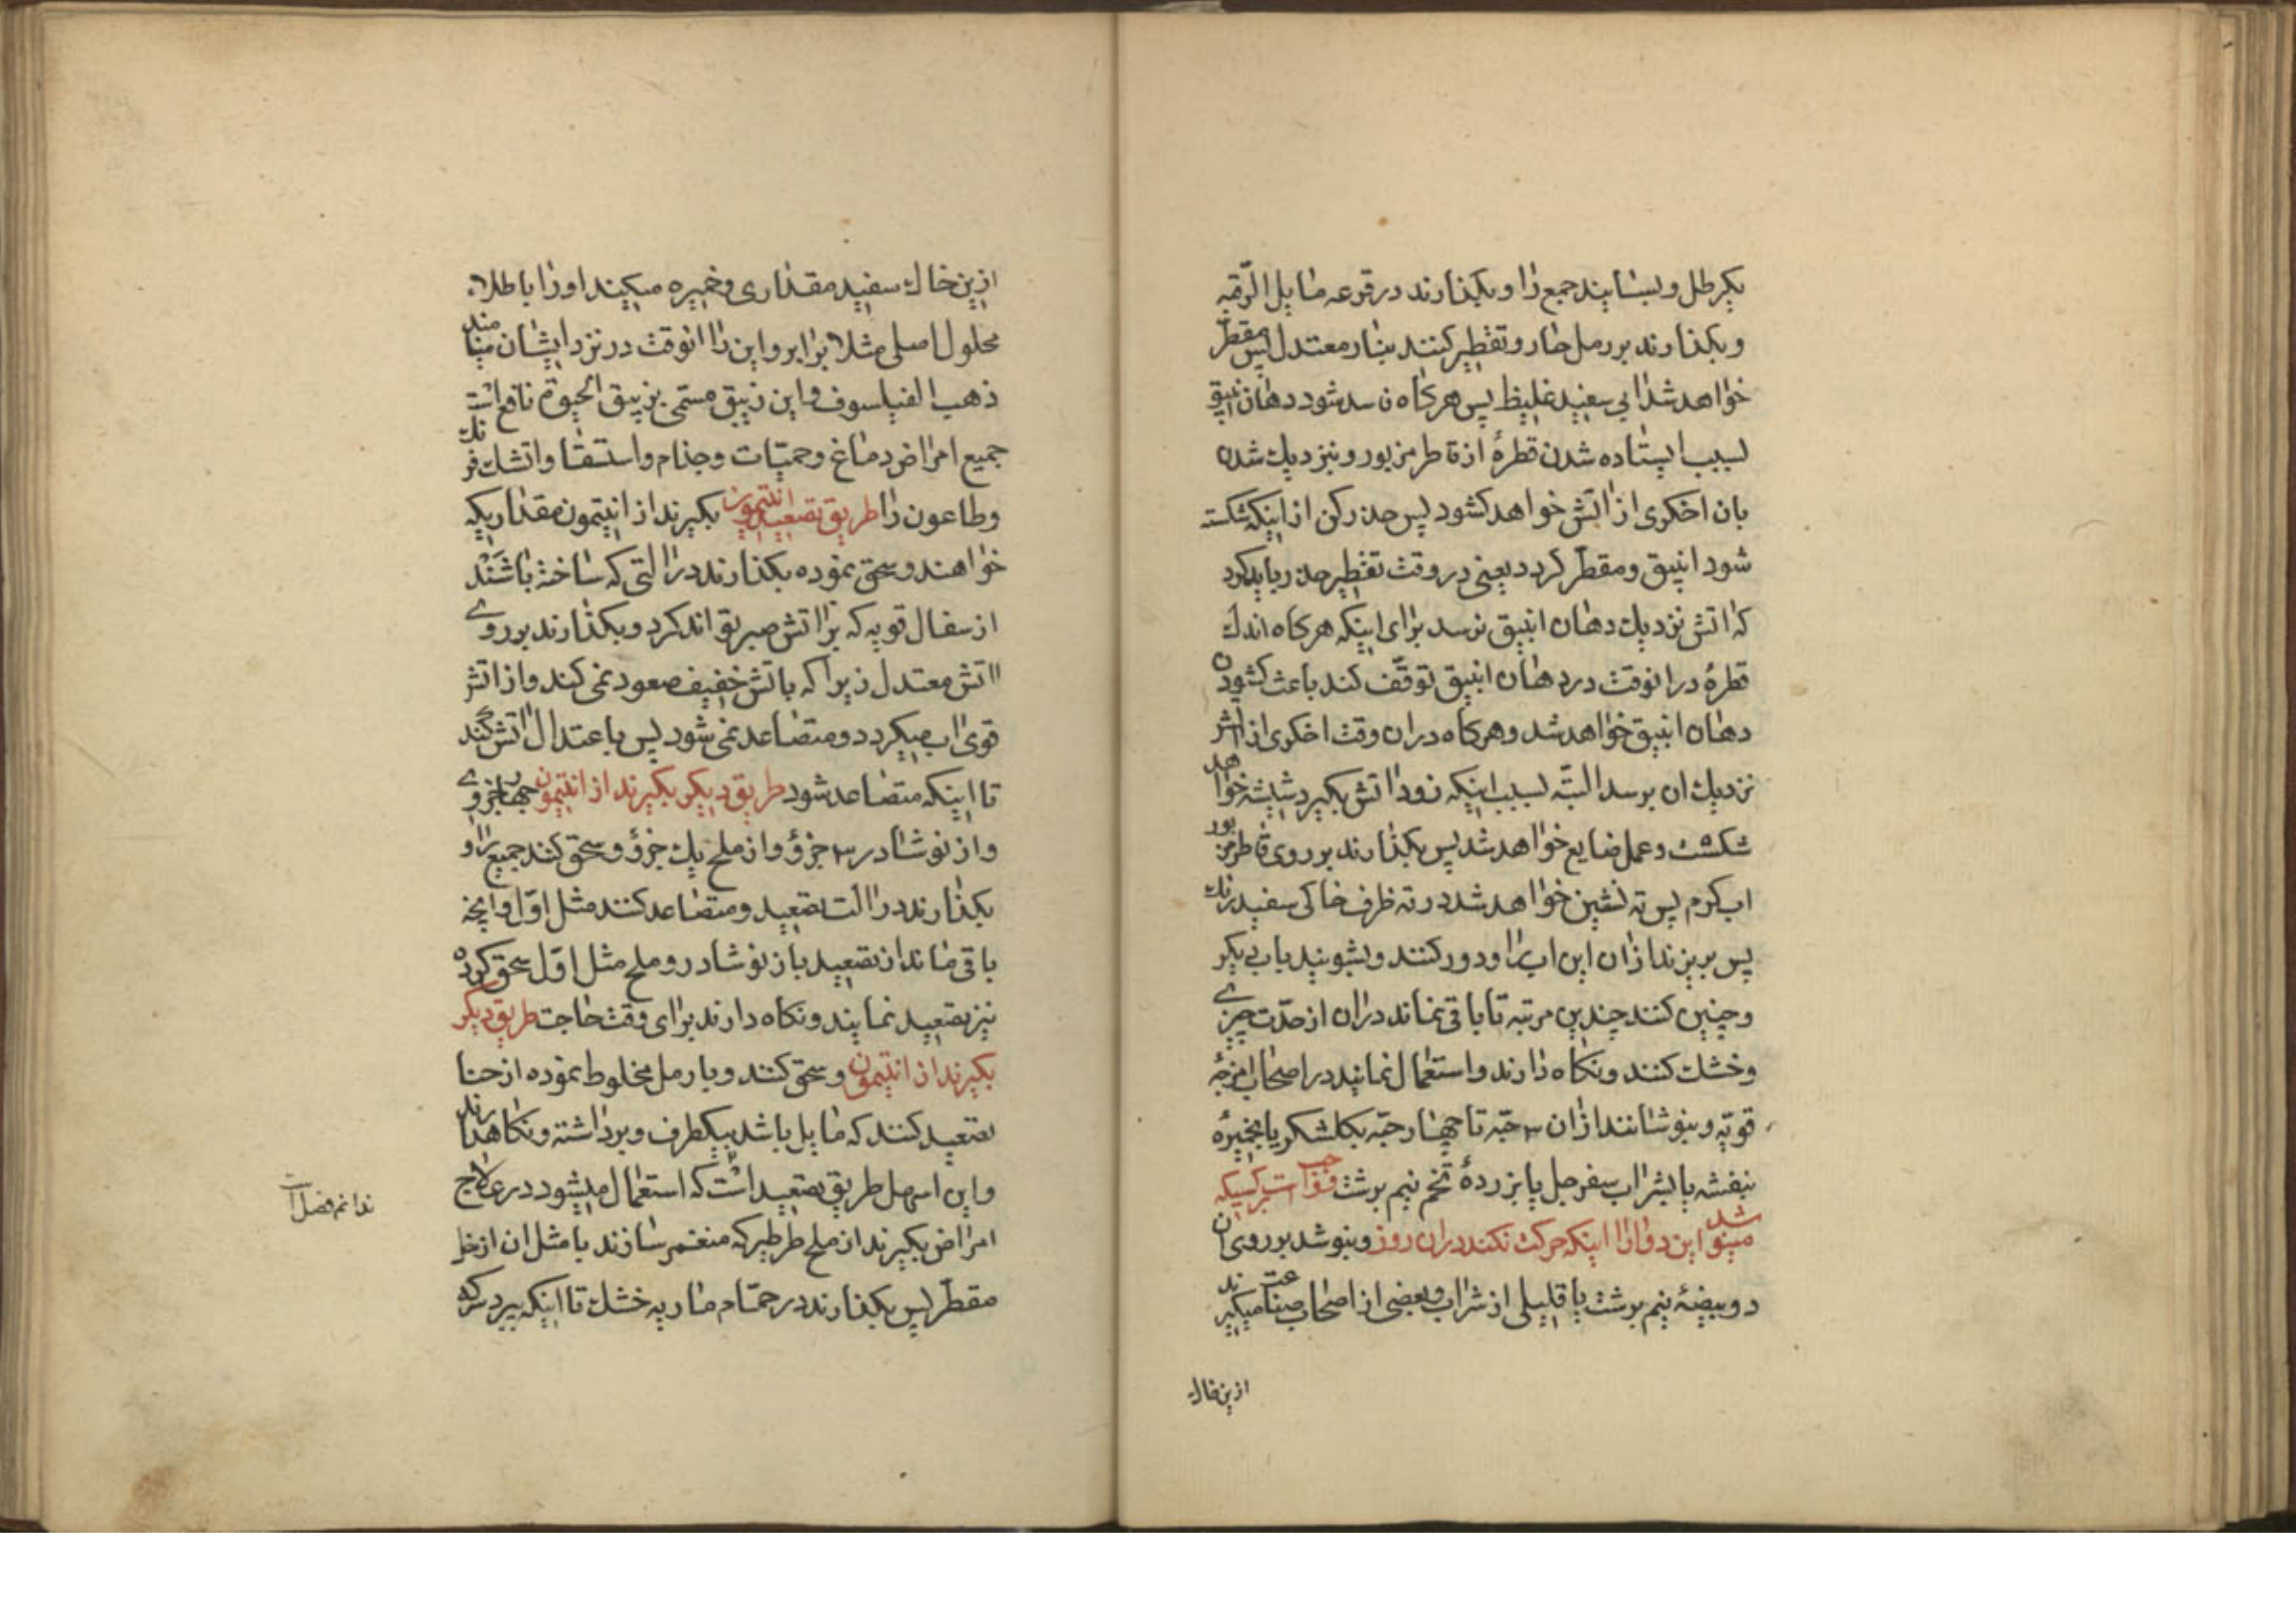 یکرطل و بسایند جمیع را و بکذارند در قرعه مایل الرقبه
و بکذارند بر رمل حار و تقطیر کنند بنار معتدل پس مقطر
خواهد شد ابی سفید غلیظ پس هرکاه ن سد شود دهان انبیق
بسبب ایستاده شدن قطرهٔ از قاطر مزبور و نزدیك شدن
بان اخکری از اتش خواهد کشود پس حذر کن از اینکه شکسته
شود انبیق و مقطر کردد یعنی در وقت تقطیر حذر باید کرد
که اتش نزدیك دهان انبیق نرسد برای اینکه هرکاه اندك
قطرهٔ در انوقت در دهان انبیق توقّف کند باعث کشودن
دهان انبیق خواهد شد و هرکاه دران وقت اخکری از اتش
نزدیك ان برسد البتّه بسبب اینکه زود اتش بکیرد شیشه خواهد
شکست و عمل ضایع خواهد شد پس بکذارند بر روی قاطر مزبور
اب کرم پس ته نشین خواهد شد در ته ظرف خاکی سفید رنك
پس بریزند ازان این اب را و دور کنند و بشویند باب دیکر
و چنین کنند چندین مرتبه تا باقی نماند دران از حدّت چیزے
و خشك کنند و نکاه دارند و استعمال نمایند در اصحاب امزجهٔ
قویّه و بنوشانند ازان ۳ حبّه تا چهار حبّه بکلشکر یا بخمیرهٔ
بنفشه یا بشراب سفرجل یا بزردهٔ تخم نیم برشت و واجب است بر کسیکه
مینوشد این دوا را اینکه حرکت نکند دران روز و بنوشد بر روی ان
دو بیضهٔ نیم برشت با قلیلی از شراب و بعضی از اصحاب صناعت میکیرند
ازین خاك
ازین خاك سفید مقداری و خمیره میکنند او را با طلاء
محلول اصلی مثلا برابر و این را انوقت در نزد ایشان مینامند
ذهب الفیلسوف و این زیبق مسمّی بزیبق الحیوة نافع است
جمیع امراض دماغ و حمیّات و جذام و استسقا و اتشك فرنك
و طاعون را طریق تصعید انتیمون بکیرند از انتیمون مقداریکه
خواهند و سحق نموده بکذارند در التی که ساخته باشند
از سفال قویه که بر اتش صبر تواند کرد و بکذارند بر روے
اتش معتدل زیرا که باتش خفیف صعود نمی کند و از اتش
قوی اب میکردد و متصاعد نمی شود پس باعتدال اتش کنند
تا اینکه متصاعد شود طریق دیکر بکیرند از انتیمون چهار جزوے
و از نوشادر ۳ جزؤ و از ملح یك جزؤ و سحق کنند جمیع را و
بکذارند در الت تصعید و متصاعد کنند مثل اوّل و انچه
باقی ماند از تصعید باز نوشادر و ملح مثل اوّل سحق کرده
نیز تصعید نمایند و نکاه دارند برای وقت حاجت طریق دیکر
بکیرند از انتیمون و سحق کنند و با رمل مخلوط نموده از حنا
تصعید کنند که مایل باشد بیکطرف و برداشته و نکاهدارند
و این اسهل طریق تصعید است که استعمال میشود در علاج
امراض بکیرند از ملح طرطیر که منغمر سازند با مثل ان از خل
مقطّر پس بکذارند در حمّام ماریه خشك تا اینکه بپرد سرکه